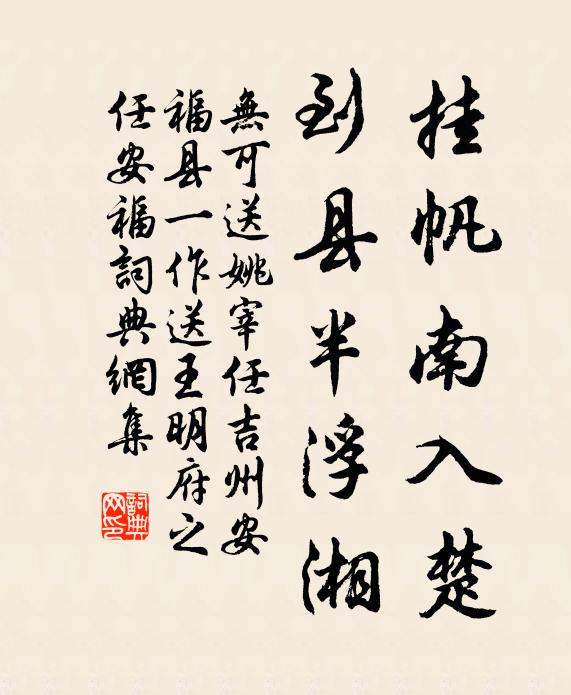 挂帆南入楚
到县半浮湘
無可送姚宰任吉州安
福县一作送王明府之
任安福詞典網集
詞典網印